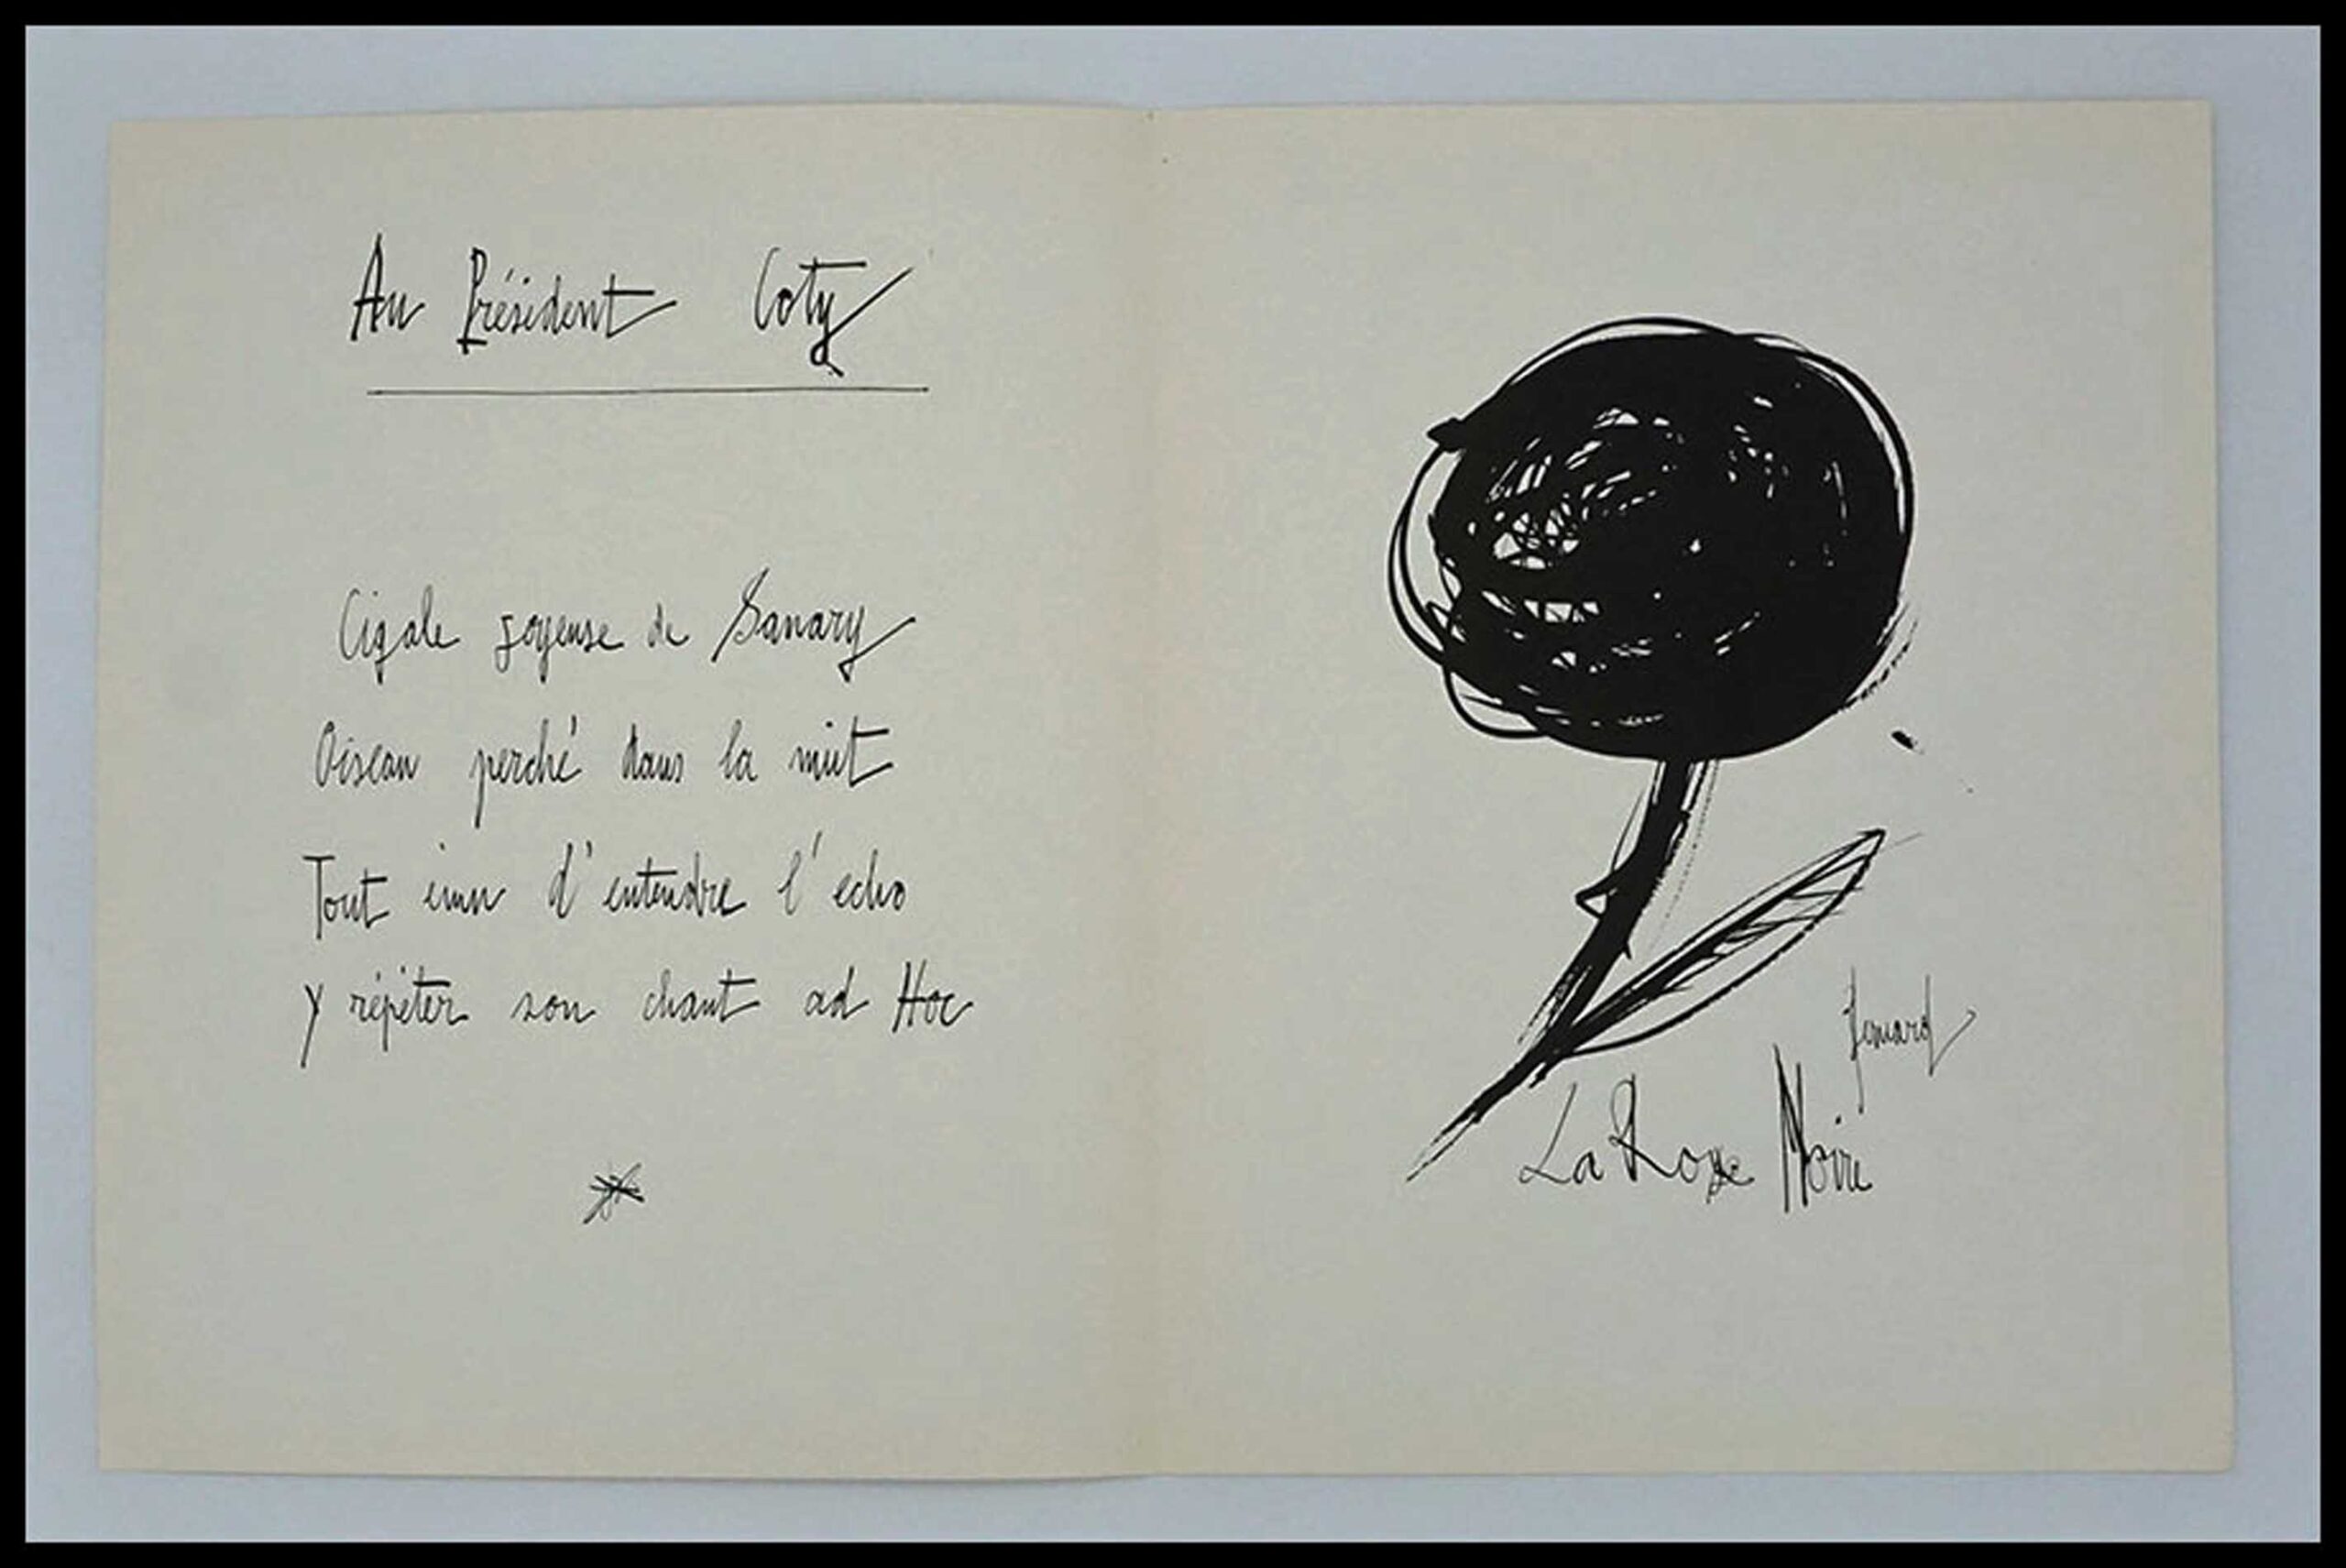 Au Président Coty
Cigale joyeuse de Sanary
Oiseau perché dans la nuit
Tout ému d'entendre l'echo
y répéter son chant ad Hoc
La Rose Noire